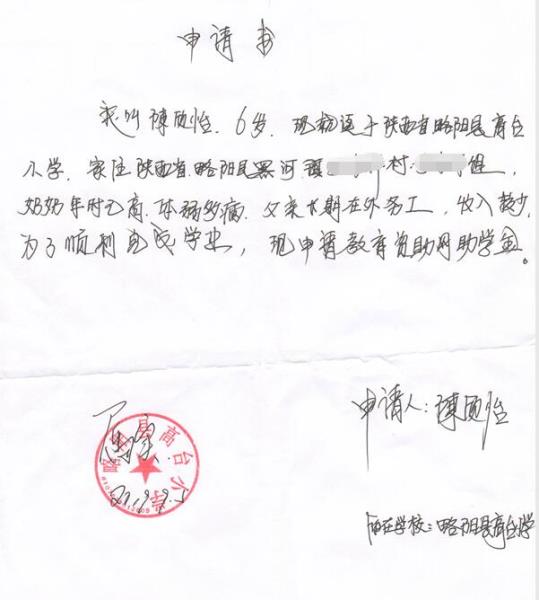 申请书
我叫陳欣怡.6岁.现就读于陕西省略阳县高台
小学.家住陕西省.略阳县黑河 村. 组,
奶奶年时已高.体弱多病.父亲长期在外务工,收入较少.
为了顺利完成学业,现申请教育资助网助学金。
申请人:陳欣怡
略阳县高台小学
所在学校:略阳县高台小学